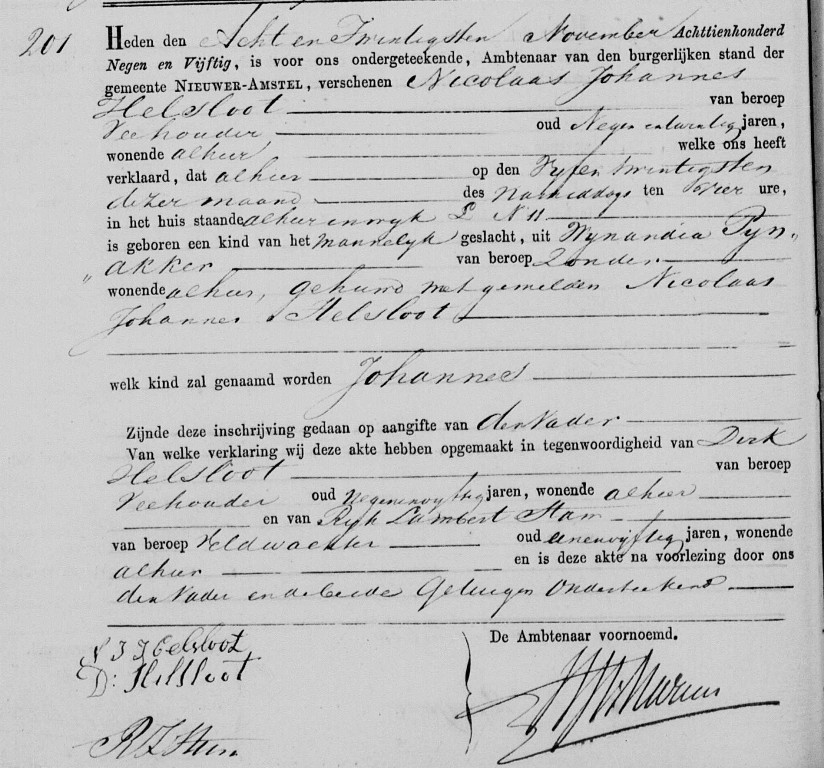 201
Heden den Acht en Twintigsten November Achttienhonderd
Negen en Vijftig, is voor ons ondergeteekende, Ambtenaar van den burgerlijken stand der
gemeente NIEUWER-AMSTEL, verschenen Nicolaas Johannes
Helsloot van beroep
Veehouder oud Negen en twintig jaren,
wonende alhier welke ons heeft
verklaard, dat alhier op den Vyf en twintigsten
dezer maand des Namiddags ten Vier ure,
in het huis staande alhier in wyk L N 11
is geboren een kind van het Mannelyk geslacht, uit Wynandia Pyn„
„akker van beroep Zonder
wonende alhier, gehuwd met gemelden Nicolaas
Johannes Helsloot
welk kind zal genaamd worden Johannes
Zijnde deze inschrijving gedaan op aangifte van den Vader
Van welke verklaring wij deze akte hebben opgemaakt in tegenwoordigheid van Dirk
Helsloot van beroep
Veehouder oud Negenenvyftig jaren, wonende alhier
en van Ryk Lambert Stam
van beroep Veldwachter oud eenenvyftig jaren, wonende
alhier en is deze akte na voorlezing door ons
den Vader en de beide Getuigen Onderteekend
De Ambtenaar voornoemd.
N J Helsloot
D: Helsloot
R L Stam